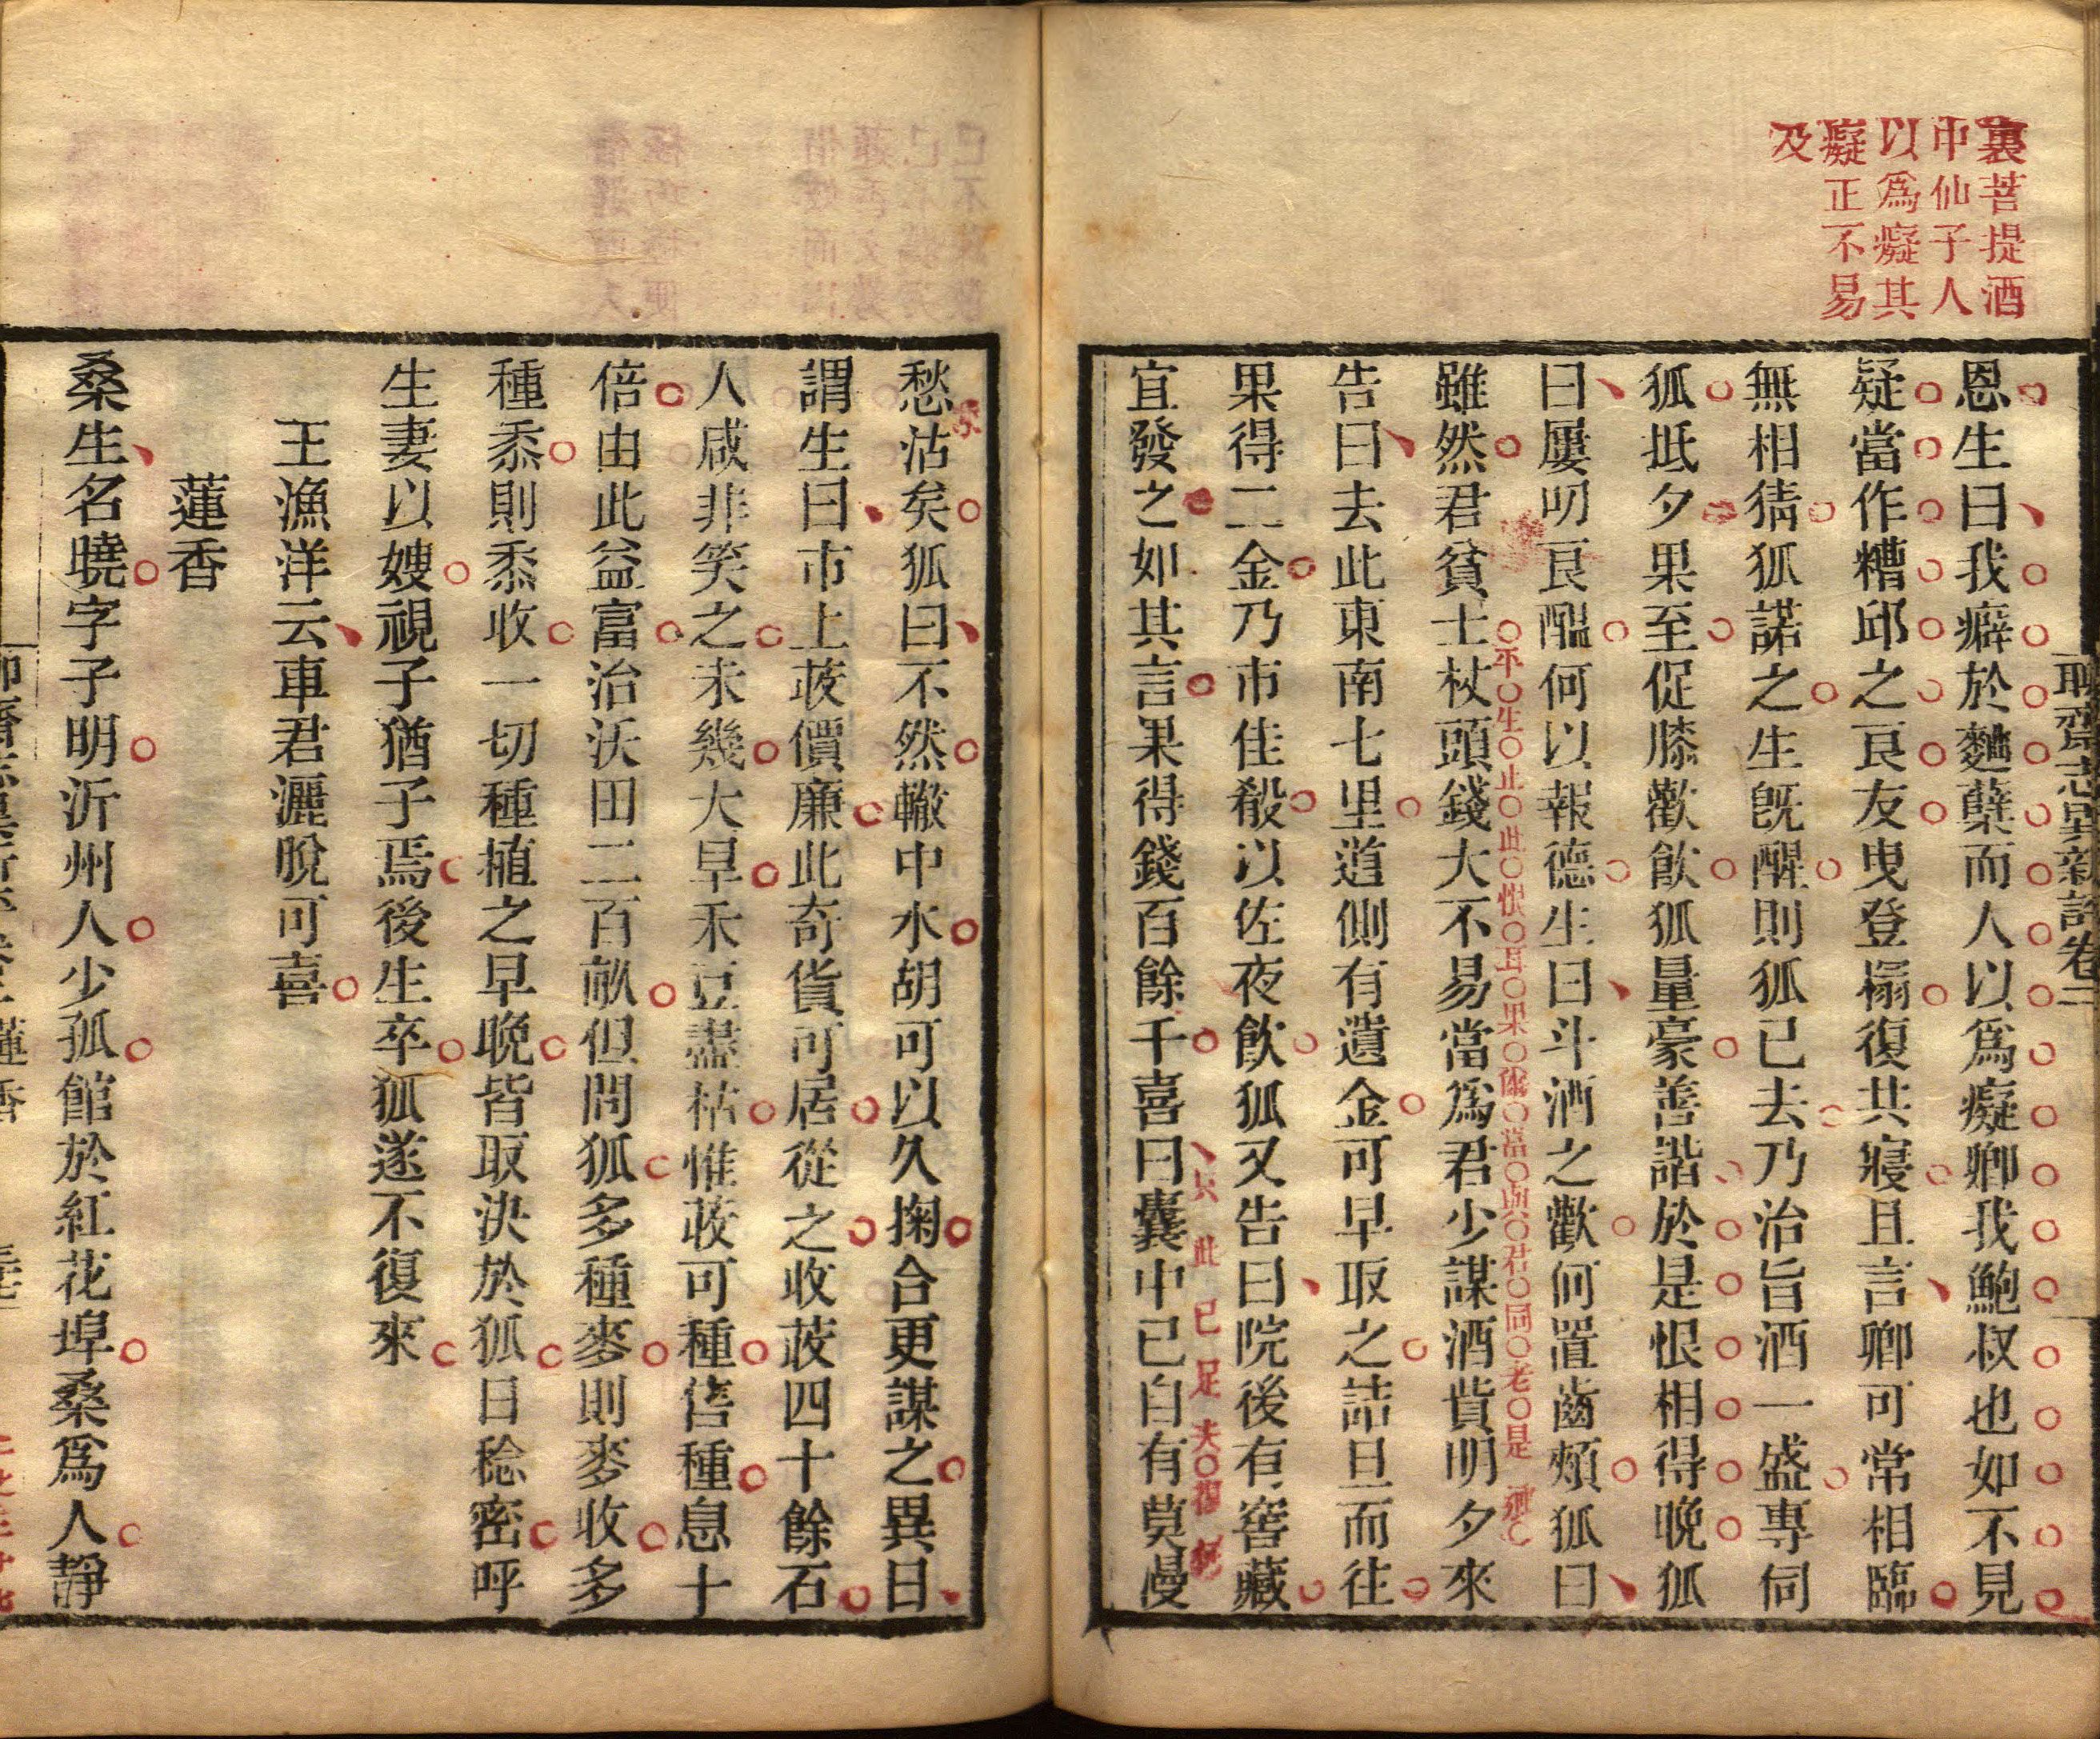 裏菩提酒
中仙子人
以爲癡其
癡正不易
及
聊齋志異新評卷二
恩生曰我癖於麯蘖而人以爲癡卿我鮑叔也如不見
疑當作糟邱之良友曳登榻復共寢且言卿可常相臨
無相猜狐諾之生既醒則狐已去乃治旨酒一盛專伺
狐抵夕果至促膝歡飲狐量豪善諧於是恨相得晚狐
曰屢叨良醞何以報德生曰斗酒之歡何置齒頰狐曰
雖然君貧士杖頭錢大不易當爲君少謀酒貲明夕來
告曰去此東南七里道側有遺金可早取之詰旦而往
果得二金乃市佳殽以佐夜飲狐又告曰院後有窖藏
宜發之如其言果得錢百餘千喜曰囊中已自有莫漫
愁沽矣狐曰不然轍中水胡可以久掬合更謀之異日
謂生曰市上荍價廉此奇貨可居從之收荍四十餘石
人咸非笑之未幾大旱禾豆盡枯惟荍可種售種息十
倍由此益富治沃田二百畝但問狐多種麥則麥收多
種黍則黍收一切種植之早晚皆取決於狐日稔密呼
生妻以嫂視子猶子焉後生卒狐遂不復來
王漁洋云車君灑脫可喜
蓮香
桑生名曉字子明沂州人少孤館於紅花埠桑爲人靜
蓮香